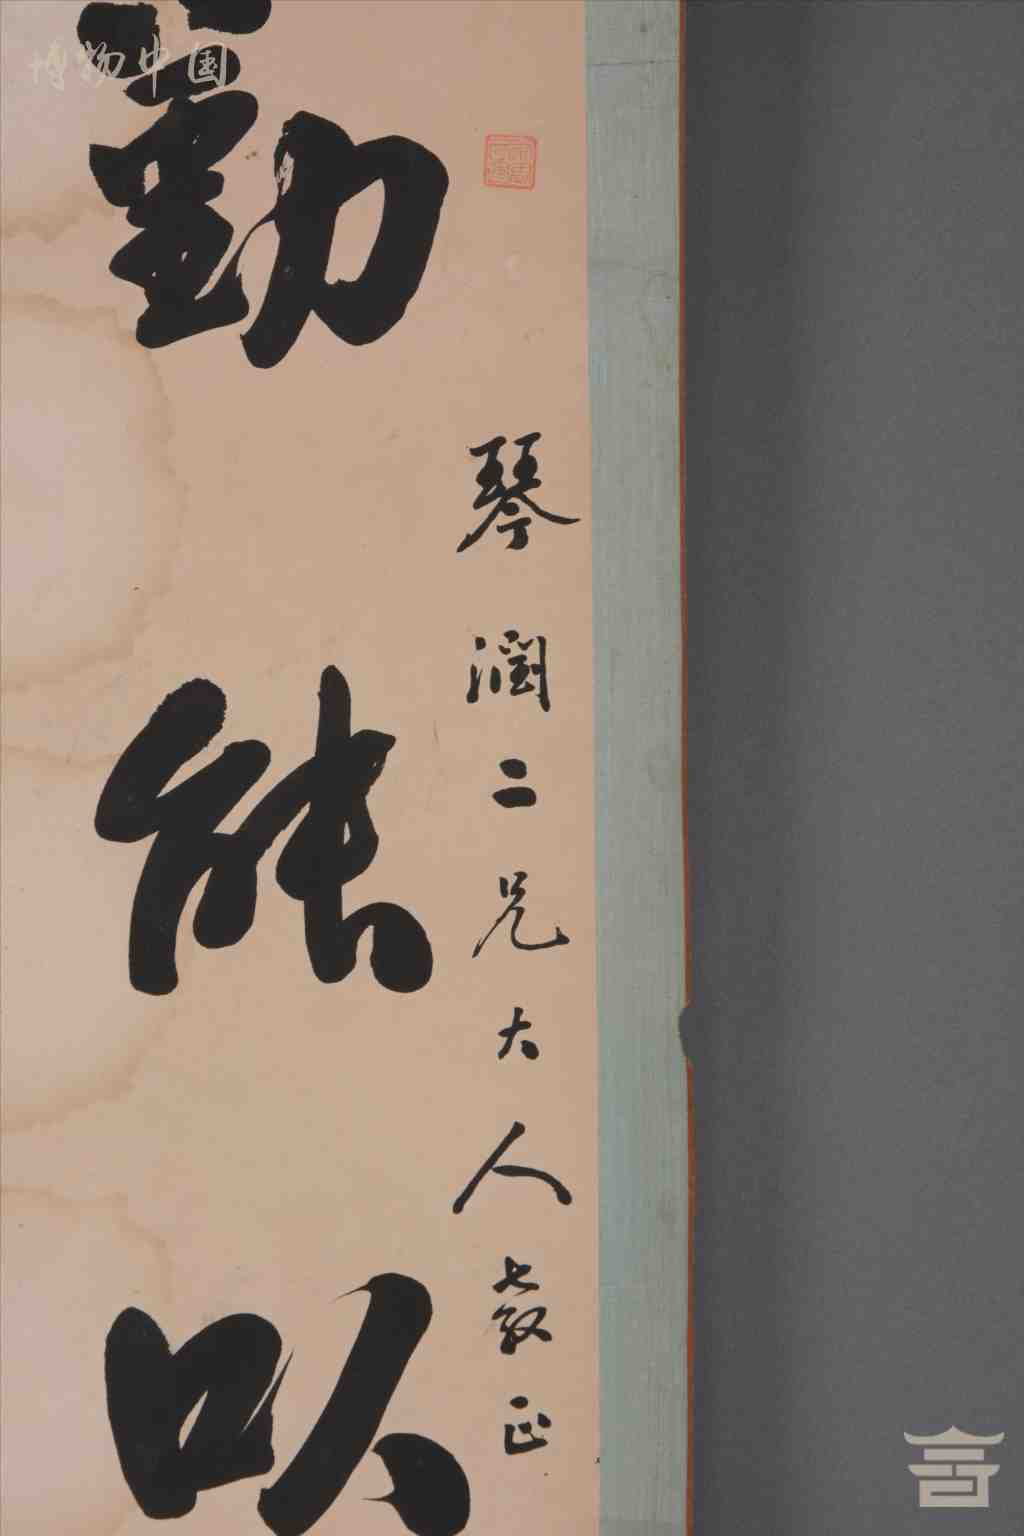 博物中国
琴潤二兄大人教正
勤能以